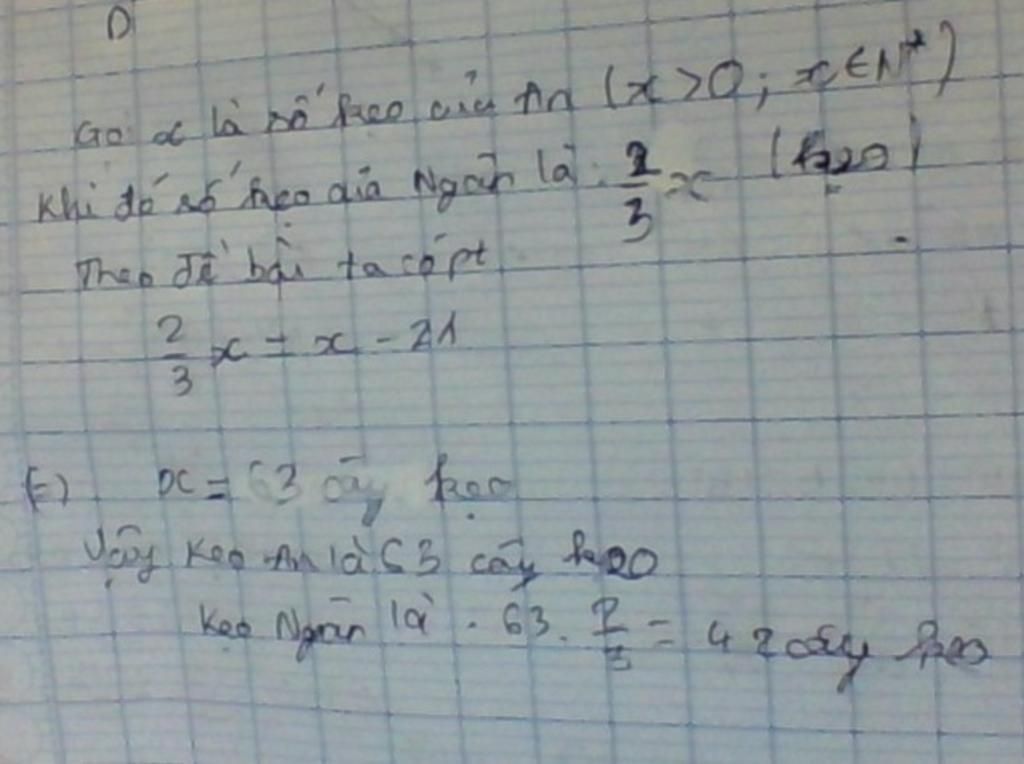 D
Gọi x là số kẹo của An (x > 0; x ∈ N*)
Khi đó số kẹo của Ngân là: 2/3 x (kẹo)
Theo đề bài ta có pt
2/3 x = x - 21
(=) x = 63 cây kẹo
Vậy kẹo An là 63 cây kẹo
kẹo Ngân là . 63 . 2/3 = 42 cây kẹo